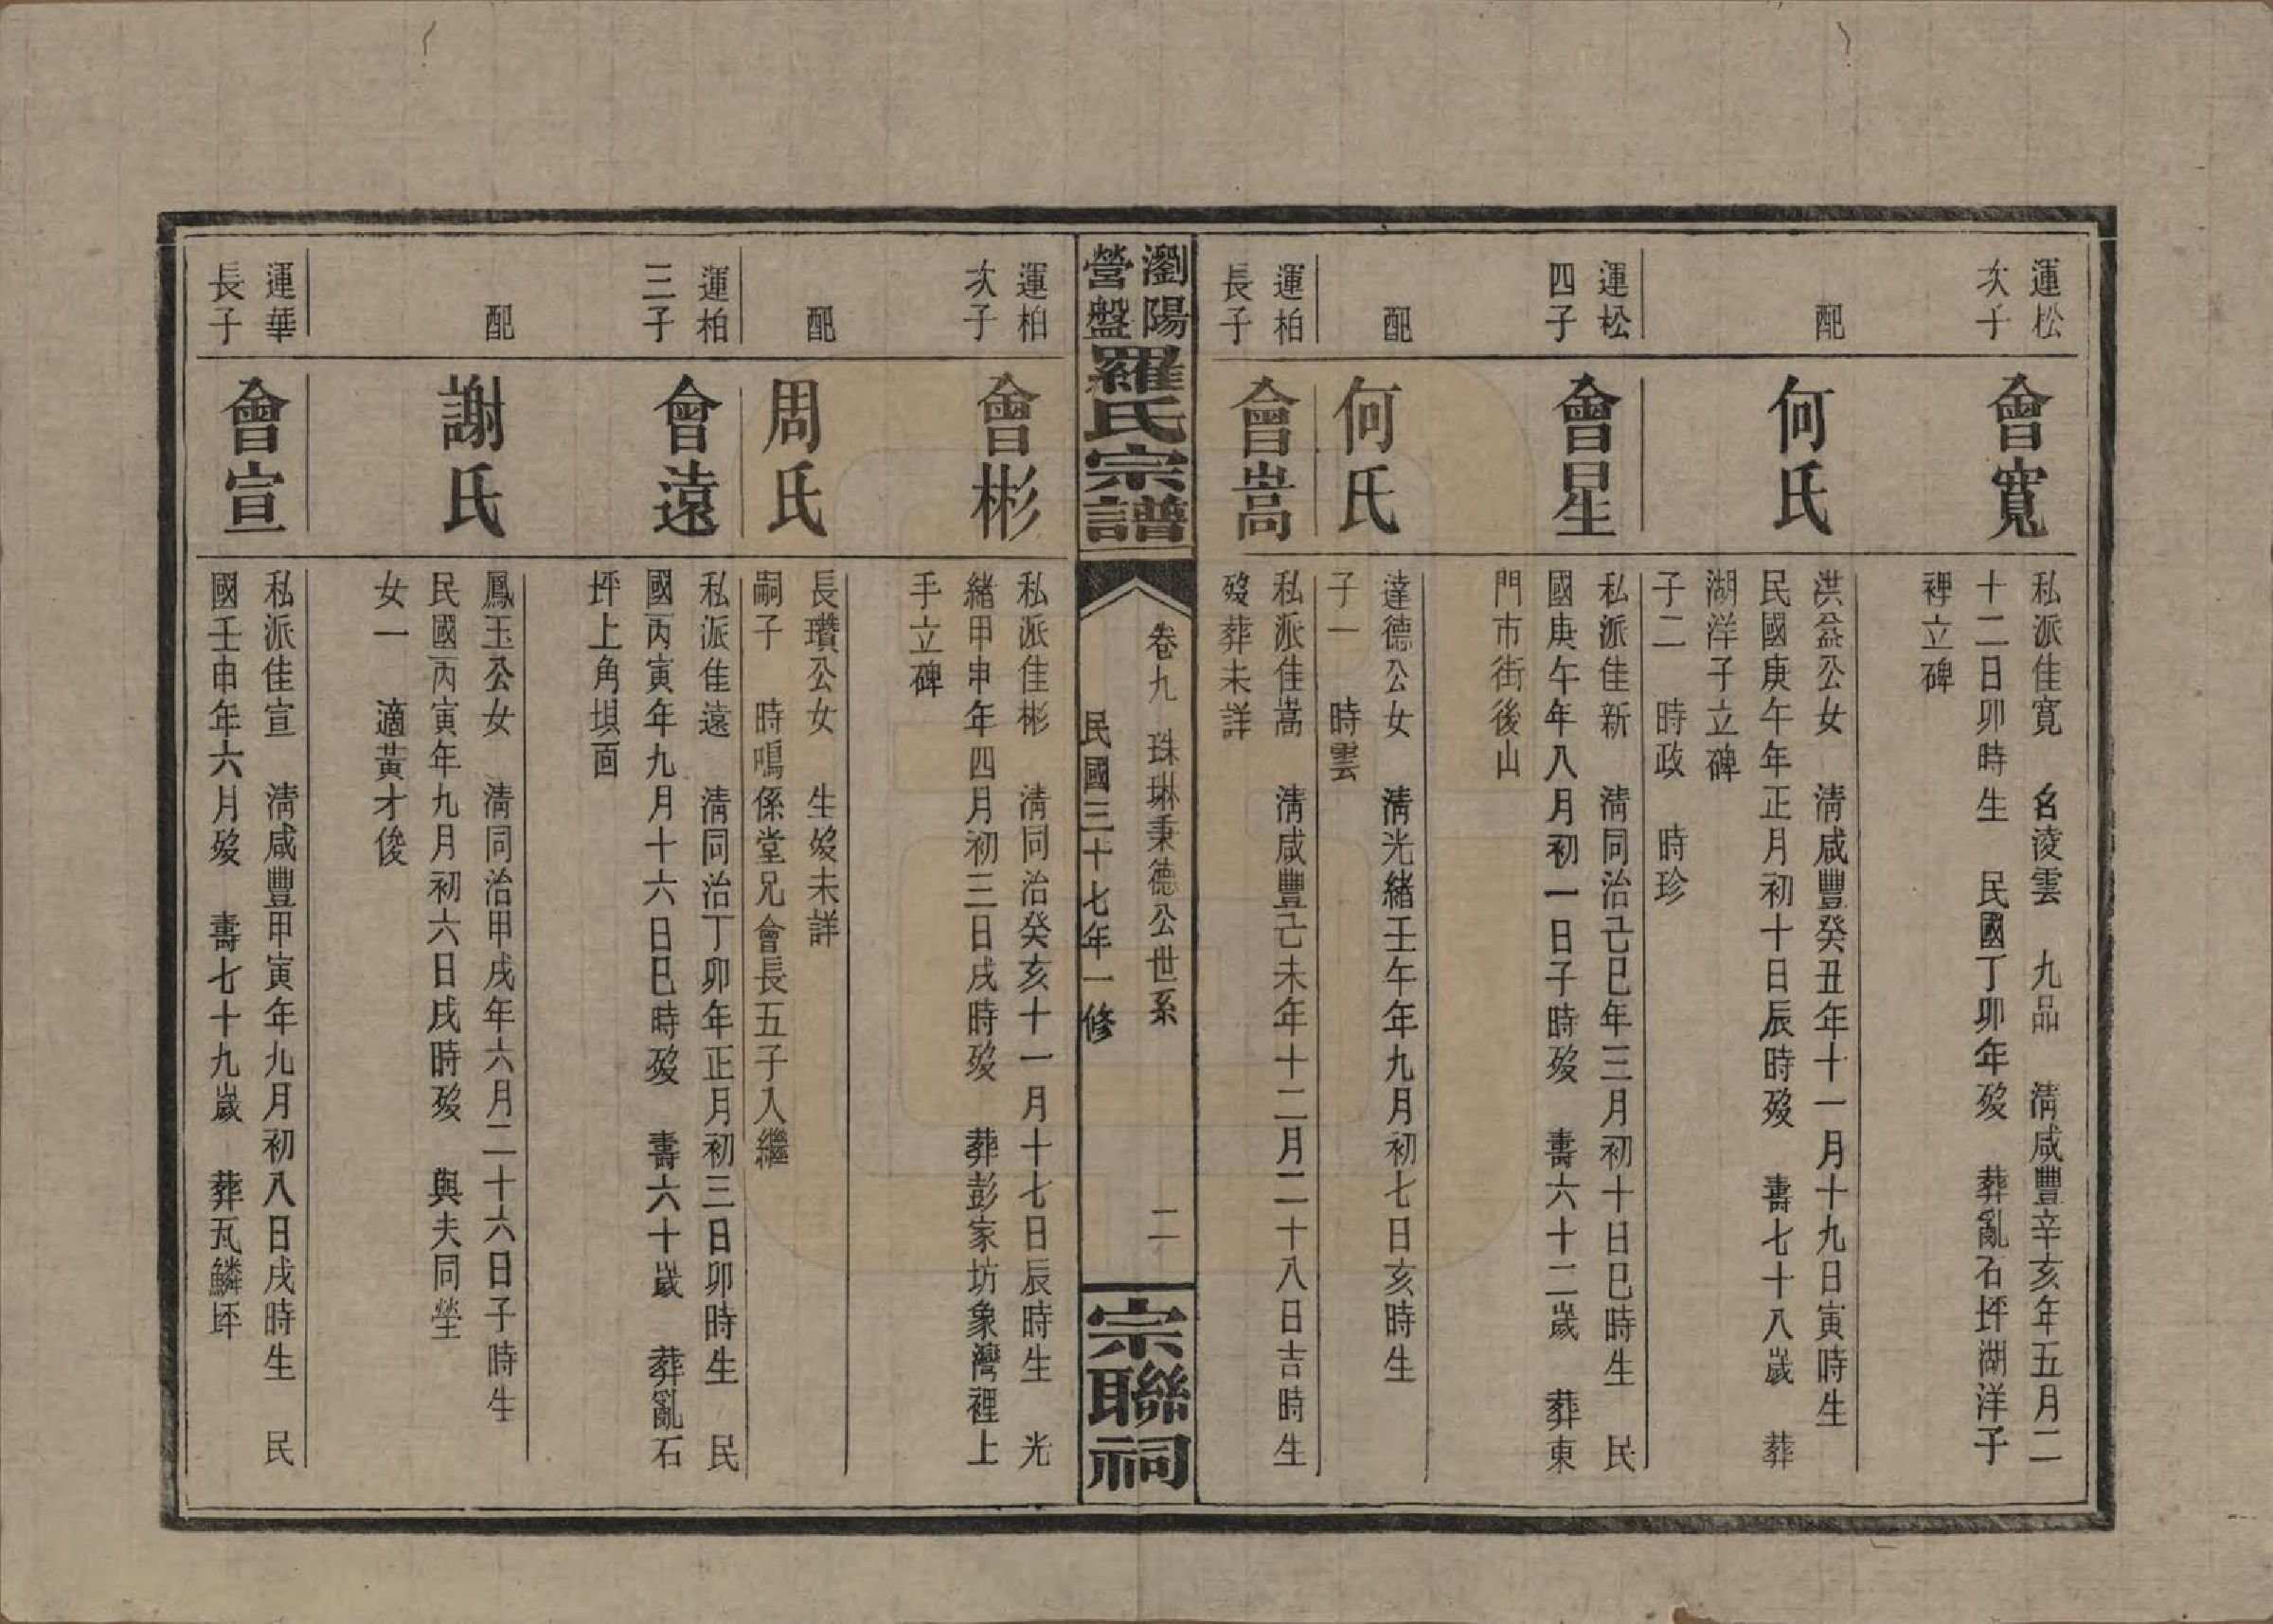 運松
次子
會寬
私派佳寬 名淩雲 九品 清咸豐辛亥年五月二
十二日卯時生 民國丁卯年歿 葬亂石坪湖洋子
裡立碑
配
何氏
洪益公女 清咸豐癸丑年十一月十九日寅時生
民國庚午年正月初十日辰時歿 壽七十八歲 葬
湖洋子立碑
子二 時政 時珍
運松
四子
會星
私派佳新 清同治己巳年三月初十日巳時生 民
國庚午年八月初一日子時歿 壽六十二歲 葬東
門市街後山
配
何氏
達德公女 清光緒壬午年九月初七日亥時生
子一 時雲
運柏
長子
會嵩
私派佳嵩 清咸豐己未年十二月二十八日吉時生
歿葬未詳
瀏陽
營盤
羅氏宗譜
卷九 珠琳秉德公世系 二
民國三十七年一修
宗聯祠
運柏
次子
會彬
私派佳彬 清同治癸亥十一月十七日辰時生 光
緒甲申年四月初三日戌時歿 葬彭家坊象灣裡上
手立碑
配
周氏
長瓚公女 生歿未詳
嗣子 時鳴係堂兄會長五子入繼
運柏
三子
會遠
私派佳遠 清同治丁卯年正月初三日卯時生 民
國丙寅年九月十六日巳時歿 壽六十歲 葬亂石
坪上角垻面
配
謝氏
鳳玉公女 清同治甲戌年六月二十六日子時生
民國丙寅年九月初六日戌時歿 與夫同塋
女一 適黃才俊
運華
長子
會宣
私派佳宣 清咸豐甲寅年九月初八日戌時生 民
國壬申年六月歿 壽七十九歲 葬瓦鱗坪